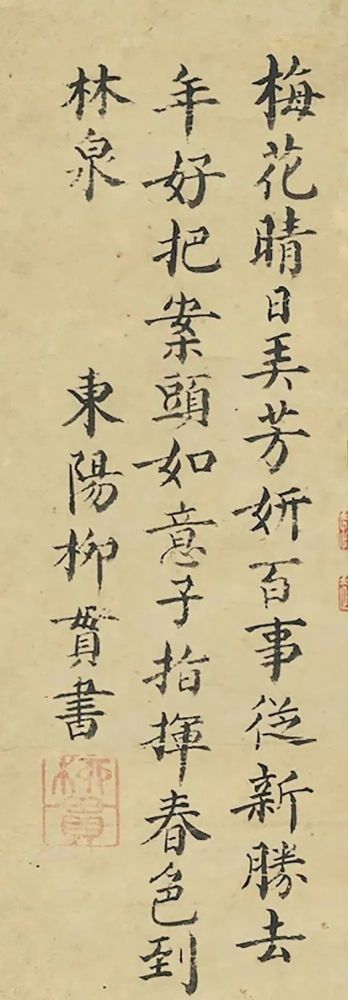 梅花晴日美芳妍百事從新勝去
年好把案頭如意子指揮春色到
林泉 東陽柳貫書
柳貫